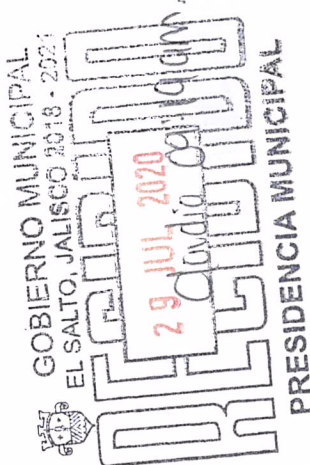 GOBIERNO MUNICIPAL
EL SALTO, JALISCO 2018 - 2021
RECIBIDO
29 JUL 2020
Claudia
PRESIDENCIA MUNICIPAL